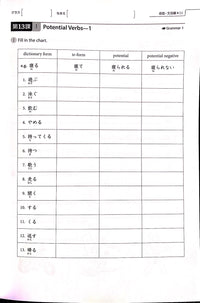 第13課 1 Potential Verbs—1
Grammar 1
Fill in the chart.
dictionary form te-form potential potential negative
e.g. 寝る 寝て 寝られる 寝られない
1. 遊ぶ
2. 泳ぐ
3. 飲む
4. やめる
5. 持ってくる
6. 待つ
7. 歌う
8. 走る
9. 聞く
10. する
11. くる
12. 返す
13. 帰る